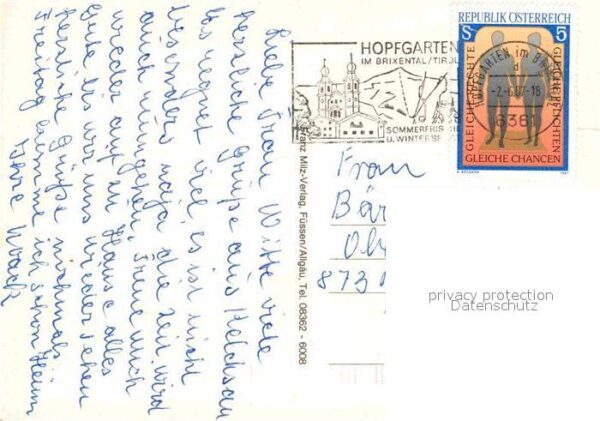 Liebe Frau Witte viele
herzliche Grüße aus Kelchsau
Es regnet viel, es ist nicht
besonders naja die Zeit wird
auch rumgehen, freue mich
wieder auf zu Hause alles
Gute bis wir uns wieder sehen
herzliche Grüße nochmals
Freitag komme ich schon Heim
Ihre
Franz Milz-Verlag, Füssen/Allgäu, Tel. 08362 - 6008
HOPFGARTEN
IM BRIXENTAL/TIROL
SOMMERFRISCHE
U. WINTERSP
REPUBLIK ÖSTERREICH
S 5
GLEICHE RECHTE
GLEICHE PFLICHTEN
GLEICHE CHANCEN
HOPFGARTEN im
6361
Frau
Bär
873
privacy protection
Datenschutz